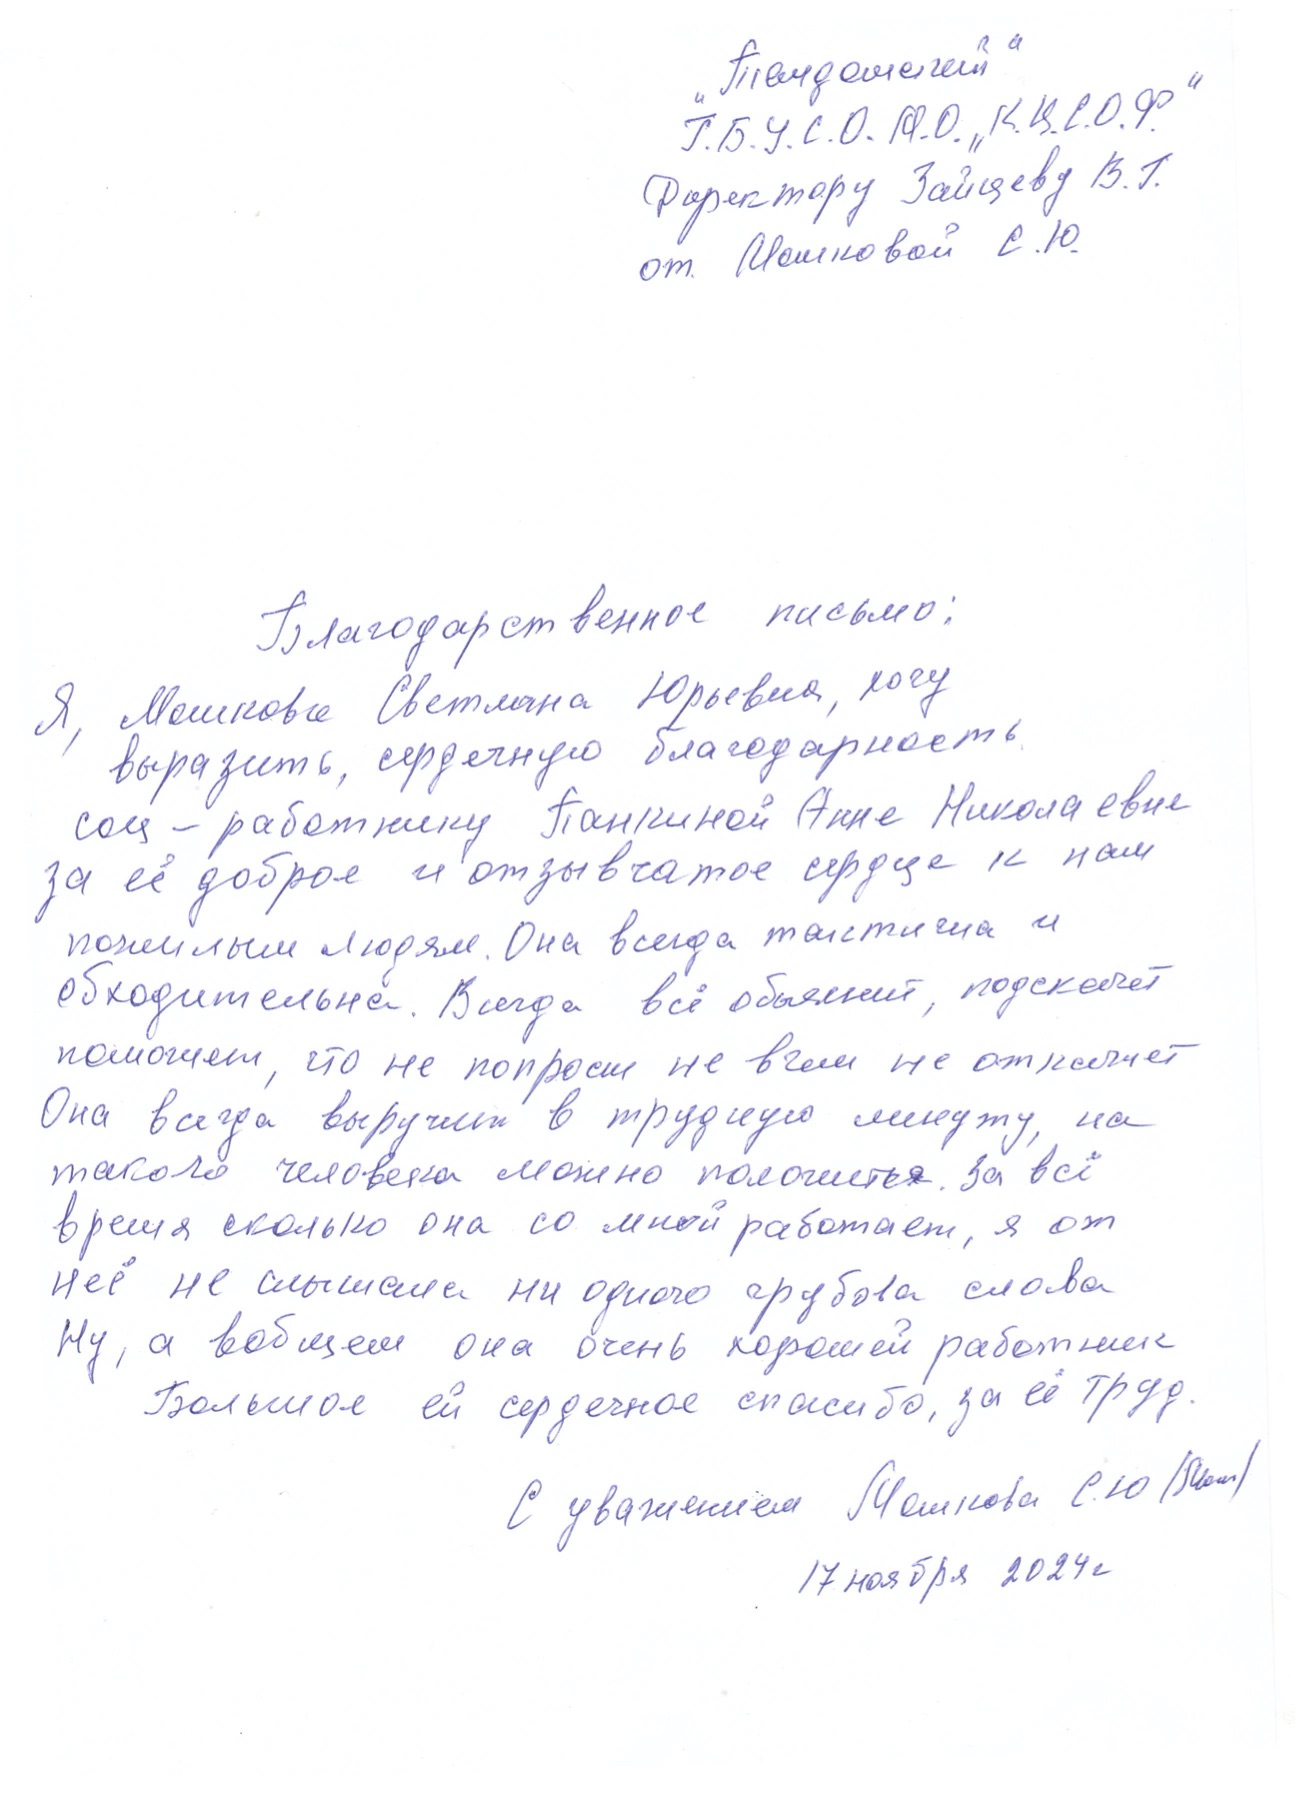 "Пандомечий"
Г.Б.У.С.О. М.О. "К.Ц.С.О.Р."
Директору Зайцеву В.Г.
от Машковой С.Ю.
Благодарственное письмо:
Я, Машкова Светлана Юрьевна, хочу
выразить, сердечную благодарность
соц - работнику Панкиной Анне Николаевне
за её доброе и отзывчатое сердце к нам
пожилым людям. Она всегда тактична и
обходительна. Всегда всё объяснит, подскажет
поможет, что не попросим не вчем не откажет
Она всегда выручит в трудную минуту, на
такого человека можно положиться. За всё
время сколько она со мной работает, я от
неё не слышала ни одного грубова слова
Ну, а вобщем она очень хороший работник
Большое ей сердечное спасибо, за её труд.
С уважением Машкова С.Ю /Маш/
17 ноября 2024г